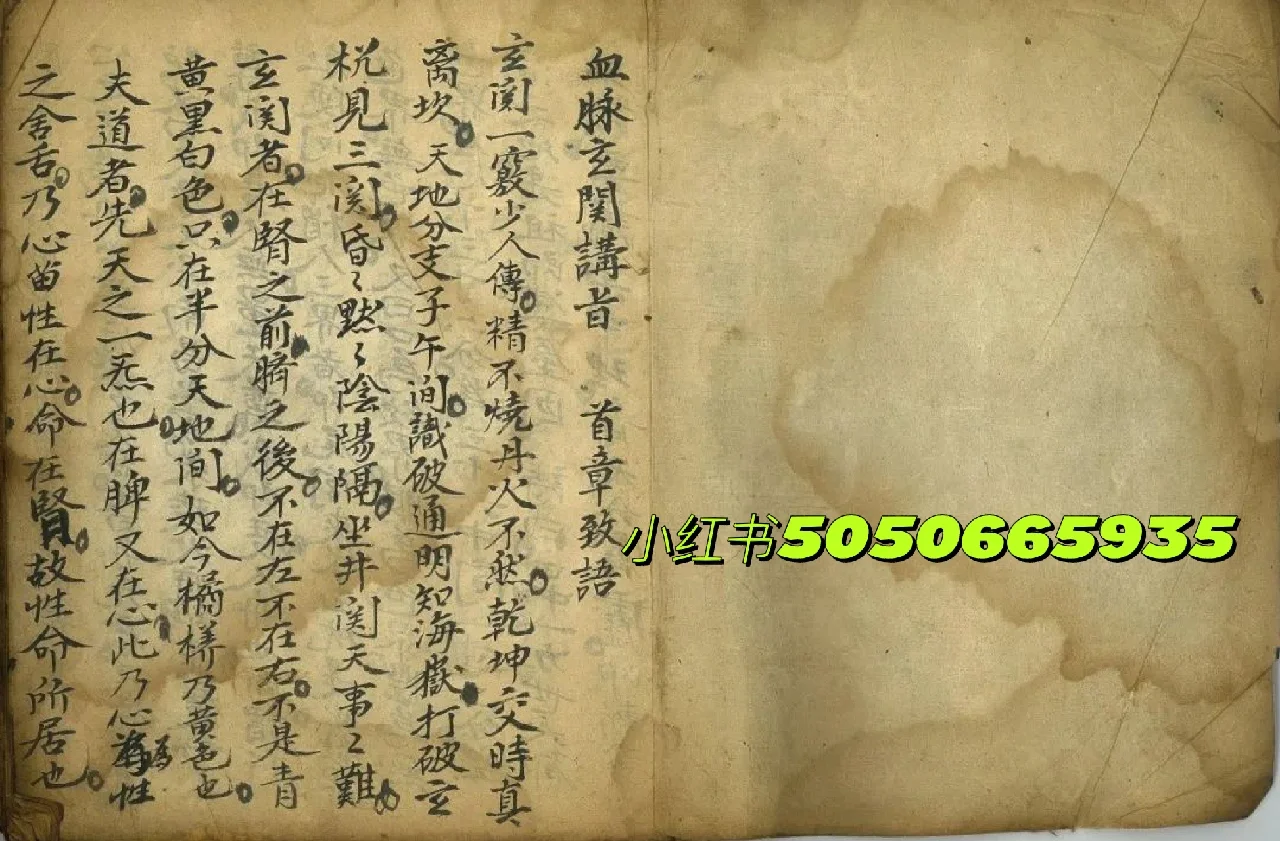 血脉玄関講旨　首章致語
玄関一竅少人傳精不燒丹火不然乾坤交時真
离坎天地分支子午间識破通明知海嶽打破玄
机見三関昏〻黙〻陰陽隔坐井関天事〻難
玄関者在腎之前臍之後不在左不在右不是青
黄黒白色只在半分天地间如今橘樣乃黄色也
夫道者先天之一炁也在脾又在心此乃心爲性
之舍舌乃心苗性在心命在腎故性命所居也
小红书5050665935